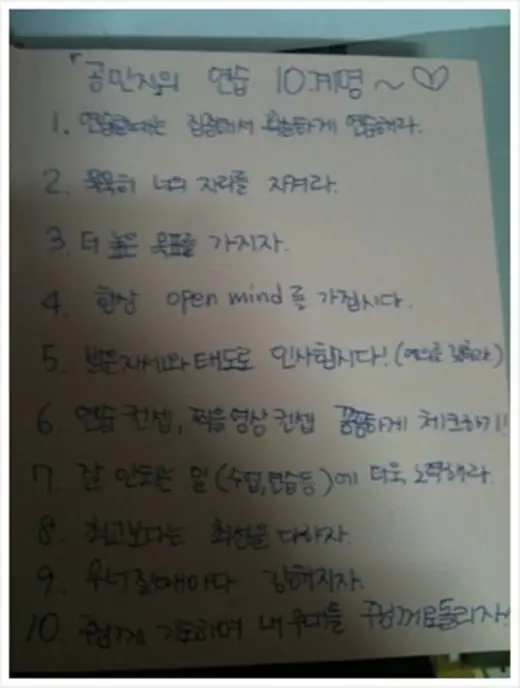 「공민지의 연습 10계명~♡
1. 연습할때는 집중해서 확실하게 연습해라.
2. 묵묵히 너의 자리를 지켜라.
3. 더 높은 목표를 가지자.
4. 항상 open mind를 가집시다.
5. 바른자세와 태도로 인사합시다! (예의를 갖춰라)
6. 연습 컨셉, 찍을영상 컨셉 꼼꼼하게 체크하기!
7 잘 안되는 일 (수업,연습등)에 더욱 노력해라.
8. 최고보다는 최선을 다하자.
9. 무너질때마다 강해지자.
10. 주님께 기도하며 내 무대를 주님께로돌리자!